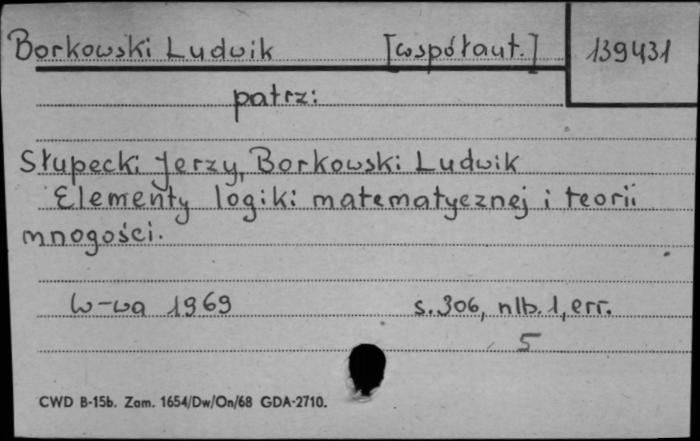 Borkowski Ludwik [współaut.] 139431
patrz:
Słupecki Jerzy, Borkowski Ludwik
Elementy logiki matematycznej i teorii
mnogości.
W-wa 1969 s. 306, nlb. 1, err.
5
CWD B-15b. Zam. 1654/Dw/On/68 GDA-2710.